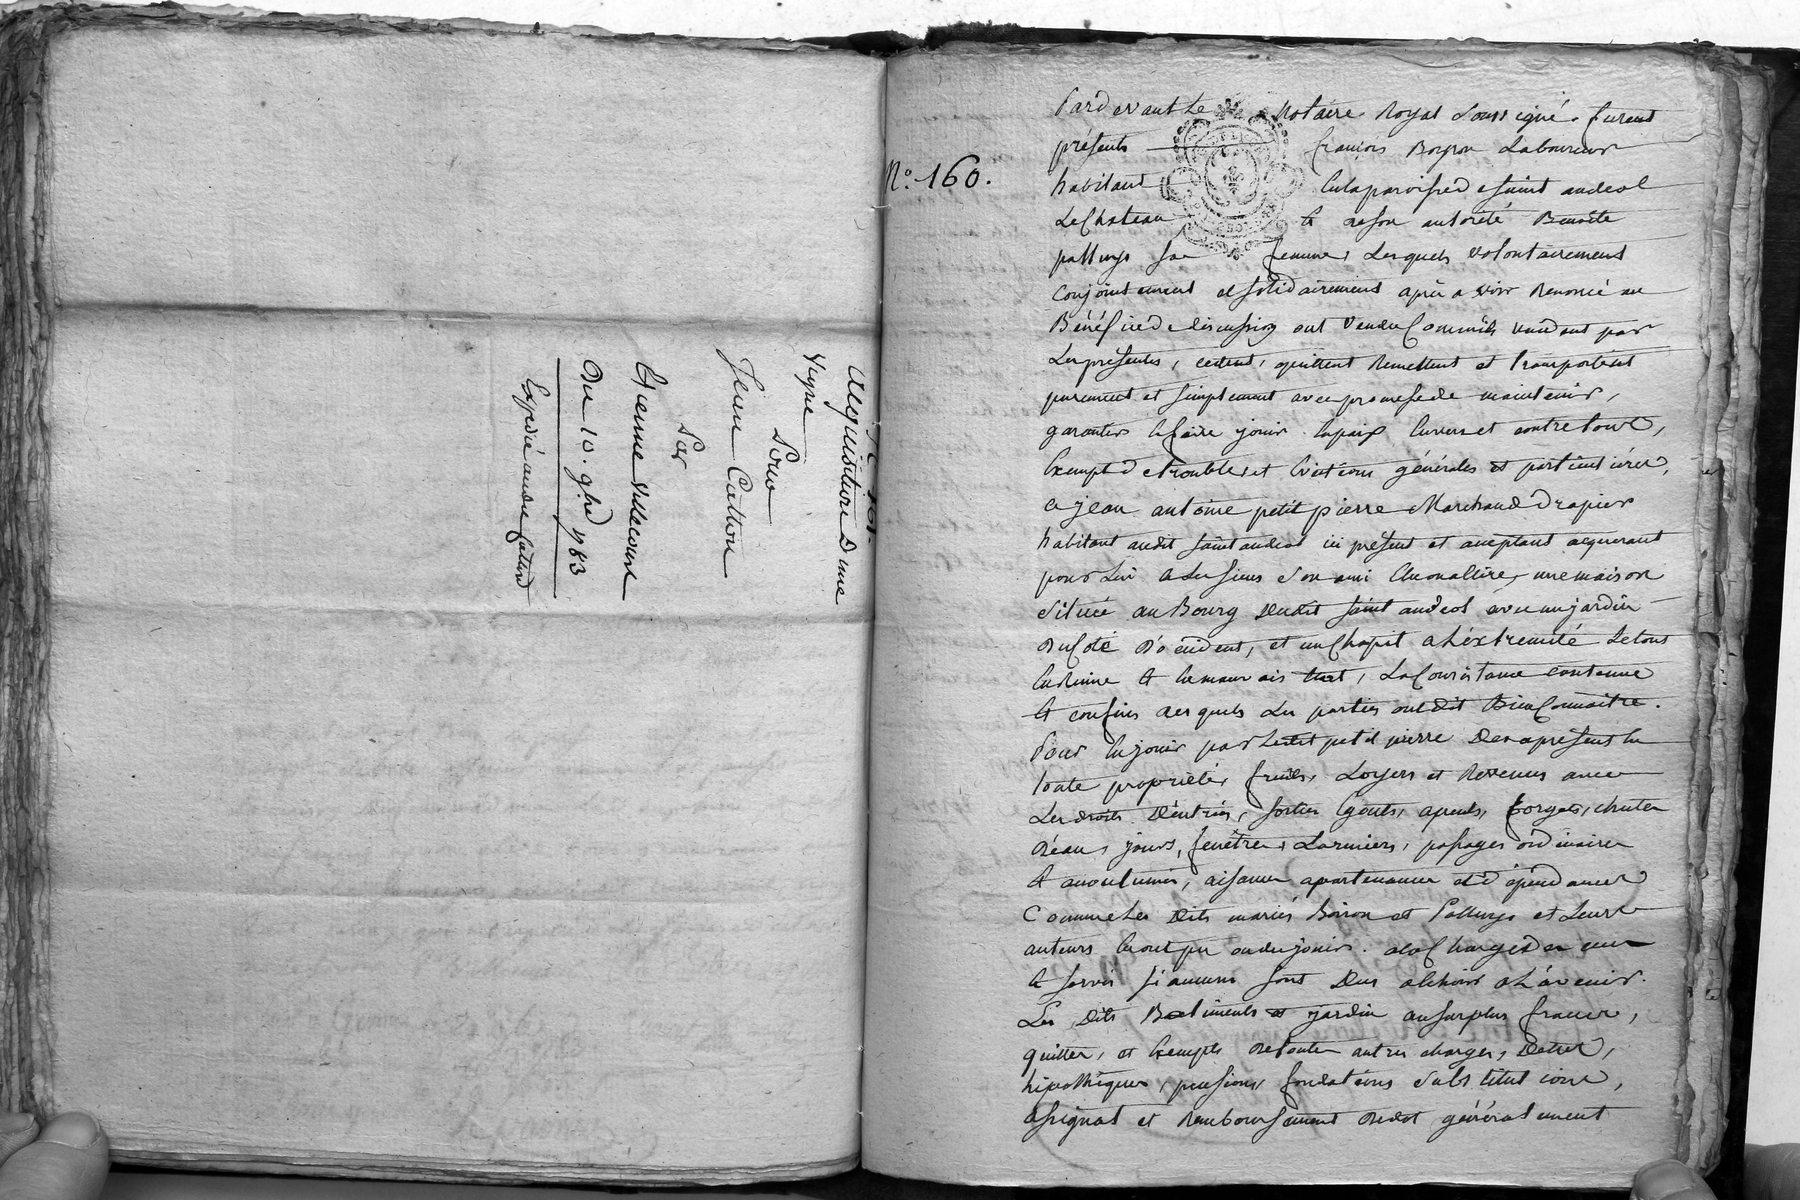 acquisition D'une
vigne
pour
Jean Catton
Par
Etienne Villecourt
Du 10. 9bre 1783
Expédié audit Catton
N.º 160.
Pardevant Le Notaire Royal soussigné. furent
présents françois Boyron Laboureur
habitant en la paroisse de saint andeol
Le Chateau et de son autorité Benoite
sa femme, Lesquels volontairement
conjointement et solidairement après avoir Renoncé au
Bénéfice de discussion ont vendu Comme ils vendent par
Les présentes, cedent, quittent Remettent et transportent
purement et simplement avec promesse de maintenir,
garantir et faire jouir en paix envers et contre tous,
Exempt de troubles et Evictions générales et particulières,
a jean antoine petit pierre Marchand Drapier
habitant audit saint andeol ici présent et acceptant acquerant
pour Lui et Les siens son ami Eluonaltire, une maison
située au Bourg Dudit saint andeol avec un jardin
Du Coté D'occident, et un Chapit a L'éxtremité Le tous
En Ruine et en mauvais Etat, La Consistance contenue
et confins desquels Les parties ont dit Bien Connaitre.
Pour En jouir par Ledit petit pierre Des apresent En
toute propriété, fruits, Loyers et Revenus avec
Les droits D'entrées, sorties Egouts, apents, forgets, chutes
D'eau, jours, fenêtres, Larmiers, passages ordinaires
et accoutumés, aisances apartenances et dépendances
Comme Les Dits mariés Boiron et et Leurs
auteurs En ont pu ou du jouir. a la Charge des cens
et servis si aucuns sont Dus a L'avenir.
Les Dits Batiments et jardin au surplus francs,
quittes, et Exempts de toutes autres charges, Dettes,
hipothèques, pensions fondations substitutions,
assignat et Remboursement de dot généralement